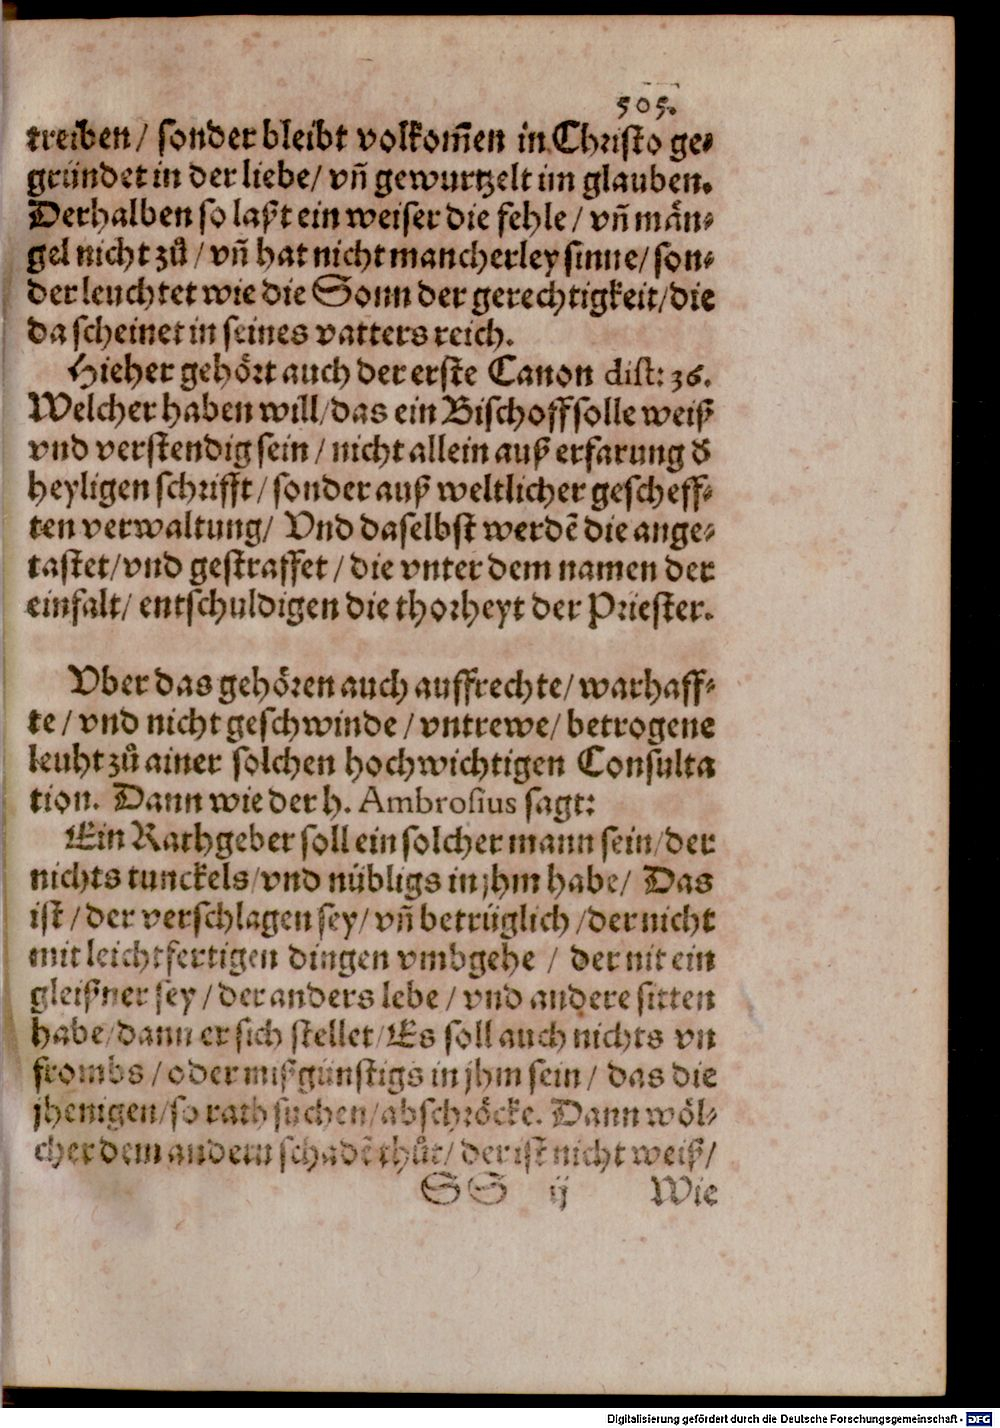 505.
treiben/ sonder bleibt volkom̃en in Christo ge⸗
gründet in der liebe/ vñ gewurtzelt im glauben.
Derhalben so laßt ein weiser die fehle/ vñ män⸗
gel nicht zů/ vñ hat nicht mancherley sinne/ son⸗
der leuchtet wie die Sonn der gerechtigkeit/ die
da scheinet in seines vatters reich.
Hieher gehört auch der erste Canon dist: 36.
Welcher haben will/ das ein Bischoff solle weiß
vnd verstendig sein/ nicht allein auß erfarung d̕
heyligen schrifft/ sonder auß weltlicher gescheff⸗
ten verwaltung/ Vnd daselbst werdẽ die ange⸗
tastet/ vnd gestraffet/ die vnter dem namen der
einfalt/ entschuldigen die thorheyt der Priester.
Vber das gehören auch auffrechte/ warhaff⸗
te/ vnd nicht geschwinde/ vntrewe/ betrogene
leuht zů ainer solchen hochwichtigen Consulta
tion. Dann wie der h. Ambrosius sagt:
Ein Rathgeber soll ein solcher mann sein/ der
nichts tunckels/ vnd nübligs in jhm habe/ Das
ist/ der verschlagen sey/ vñ betrüglich/ der nicht
mit leichtfertigen dingen vmbgehe/ der nit ein
gleißner sey/ der anders lebe/ vnd andere sitten
habe/ dann er sich stellet/ Es soll auch nichts vn
frombs/ oder mißgünstigs in jhm sein/ das die
jhenigen/ so rath suchen/ abschröcke. Dann wöl⸗
cher dem andern schadẽ thůt/ der ist nicht weiß/
SS ij Wie
Digitalisierung gefördert durch die Deutsche Forschungsgemeinschaft - DFG